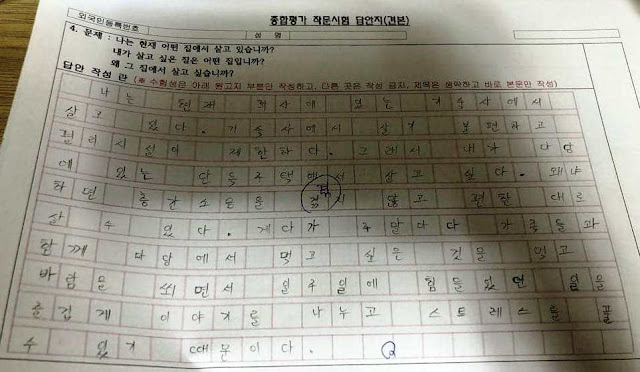 종합평가 작문시험 답안지(견본)
외국인등록번호
성 명
4. 문제 : 나는 현재 어떤 집에서 살고 있습니까?
내가 살고 싶은 집은 어떤 집입니까?
왜 그 집에서 살고 싶습니까?
답안 작성 란 (※ 수험생은 아래 원고지 부분만 작성하고, 다른 곳은 작성 금지, 제목은 생략하고 바로 본문만 작성)
나는 현재 회사에 있는 기숙사에서
살고 있다. 기숙사에서 살기 불편하고
편리시설이 제한하다. 그래서 내가 마당
에 있는 단독주택에서 살고 싶다. 왜냐
하면 층간소음을 겪지 않고 편한 대로
살 수 있다. 게다가 주말마다 가족들과
함께 마당에서 먹고 싶은 것을 먹고
바람을 쐬면서 일주일에 힘들었던 일을
즐겁게 이야기를 나누고 스트레스를 풀
수 있기 때문이다.